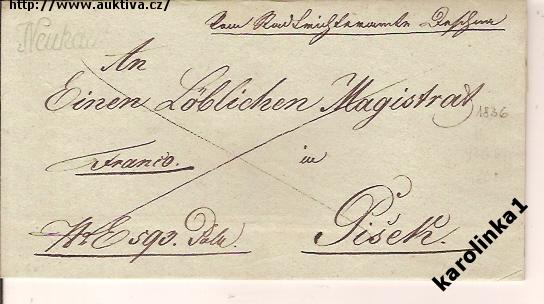 http://www.auktiva.cz/
Vom Stadtrichteramte
Neuhau
An
Einen Löblichen Magistrat
1836
Franco.
in
Pisek.
karolinka1